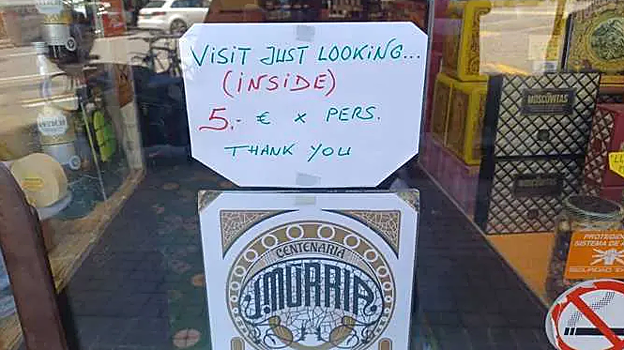 VISIT JUST LOOKING...
(INSIDE)
5.- € x PERS.
THANK YOU
CENTENARIA
MURRIA
MOSCOVITAS
PROTEGIDO
SISTEMA DE